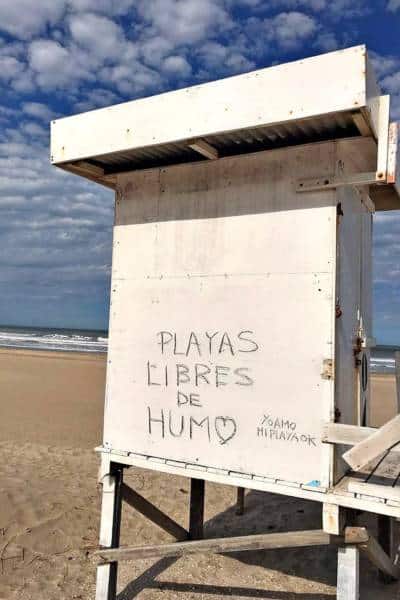 PLAYAS
LIBRES
DE
HUMO
YO AMO
MI PLAYA OK